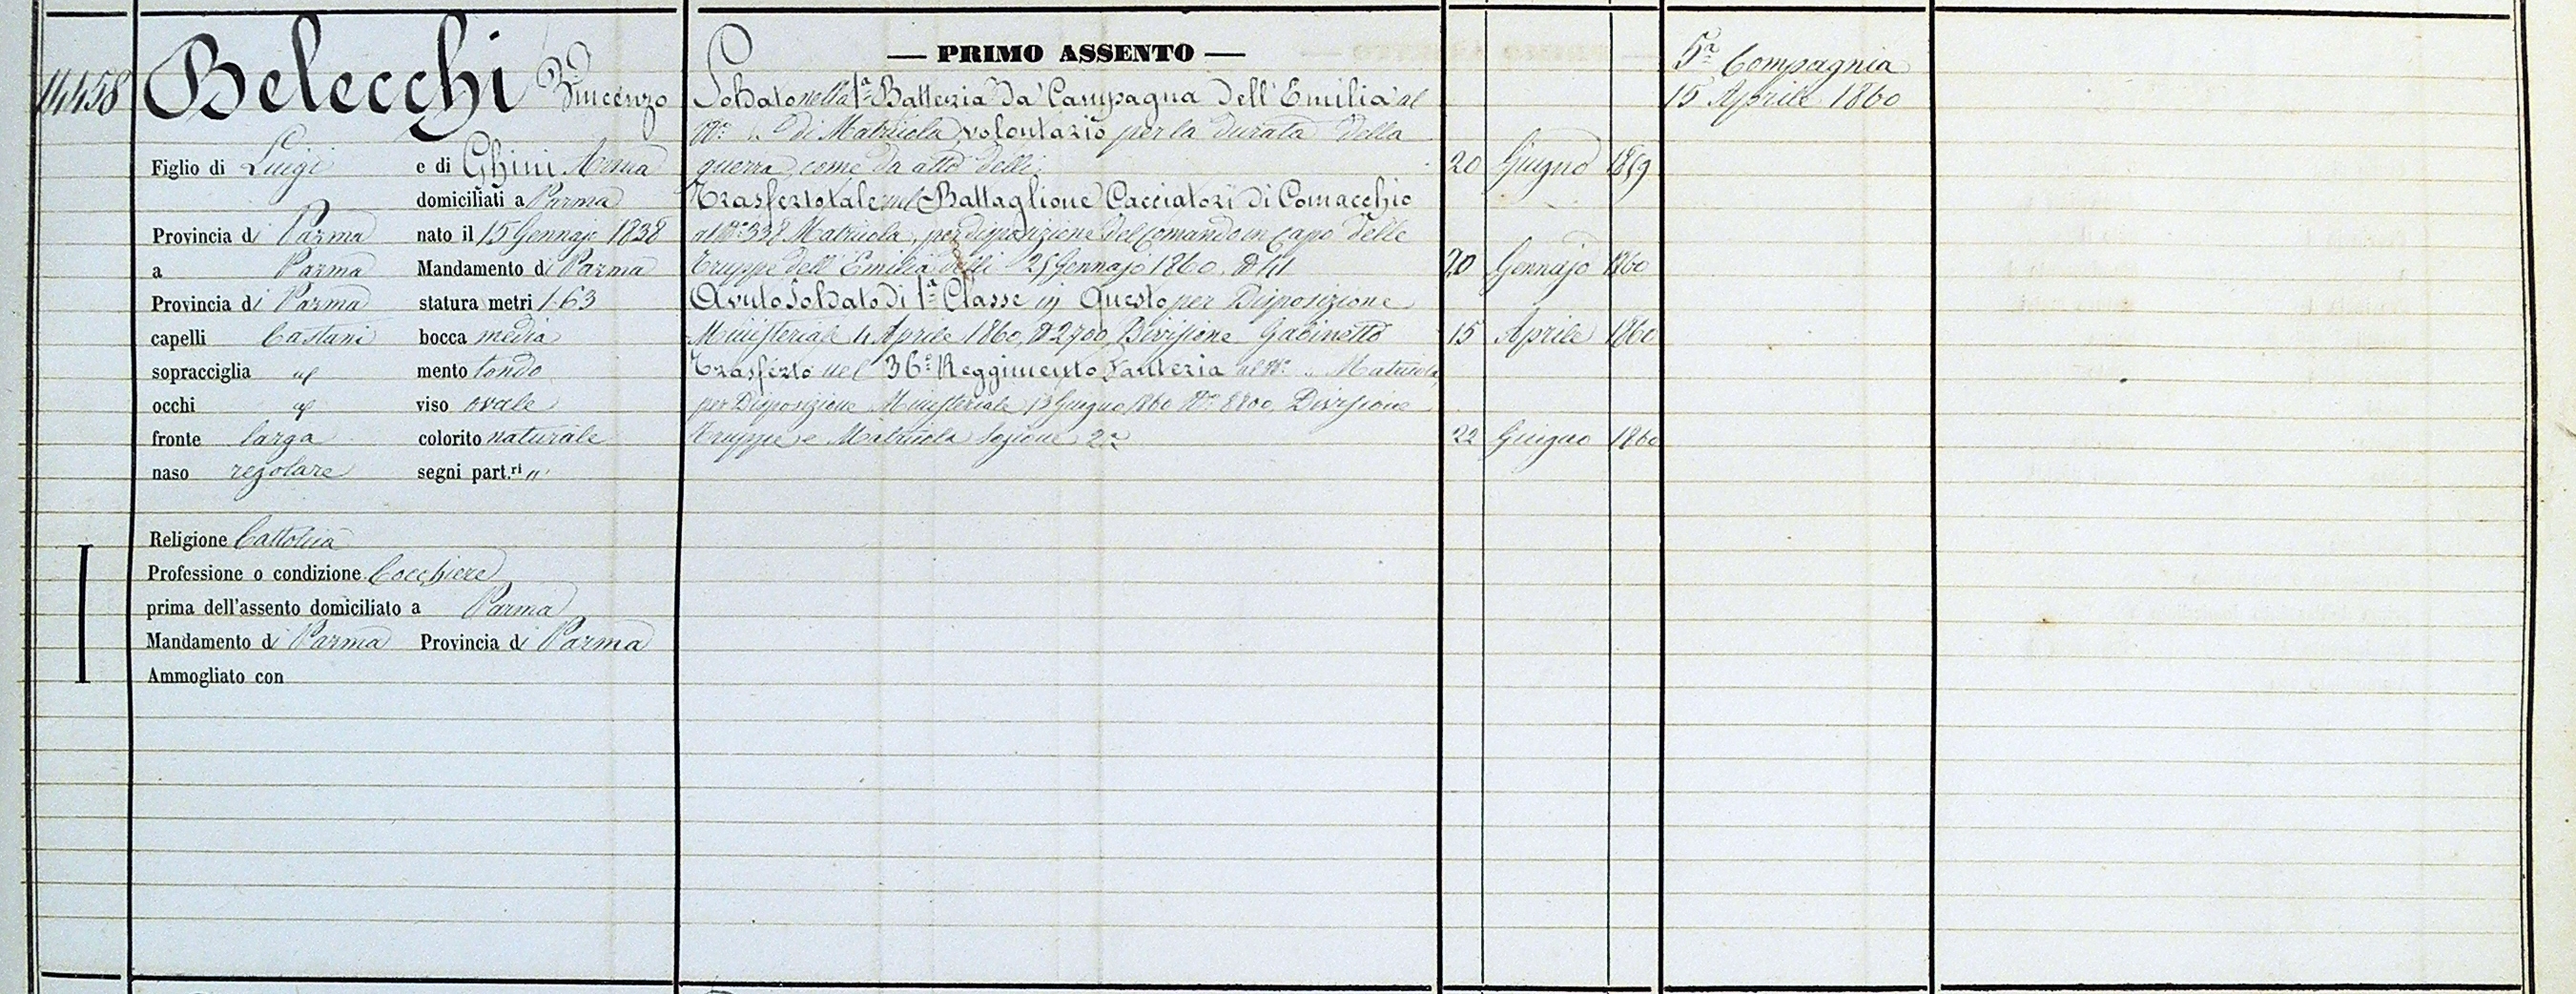 — PRIMO ASSENTO —
14458 Belecchi Vincenzo
Figlio di Luigi e di Ghini Anna
domiciliati a Parma
Provincia di Parma nato il 15 Gennajo 1838
a Parma Mandamento di Parma
Provincia di Parma statura metri 1.63
capelli Castani bocca media
sopracciglia id mento tondo
occhi id viso ovale
fronte larga colorito naturale
naso regolare segni part.ri "
Religione Cattolica
Professione o condizione Cocchiere
prima dell'assento domiciliato a Parma
Mandamento di Parma Provincia di Parma
Ammogliato con
Soldato nella 1ª Batteria da Campagna dell'Emilia al
Nº " di Matricola, volontario per la durata della
guerra, come da atto delli 20 Giugno 1859
Trasferto tale nel Battaglione Cacciatori di Comacchio
al Nº 338 Matricola, per disposizione del Comando in Capo delle
Truppe dell'Emilia delli 25 Gennajo 1860. Nº 41 20 Gennajo 1860
Avuto Soldato di 1ª Classe in Questo per Disposizione
Ministeriale 4 Aprile 1860, Nº 2700, Divisione Gabinetto 15 Aprile 1860
Trasferto nel 36º Reggimento Fanteria al Nº " Matricola,
per Disposizione Ministeriale 13 Giugno 1860 Nº 8800, Divisione
Truppe e Matricola Sezione 2ª 22 Giugno 1860
5ª Compagnia
15 Aprile 1860